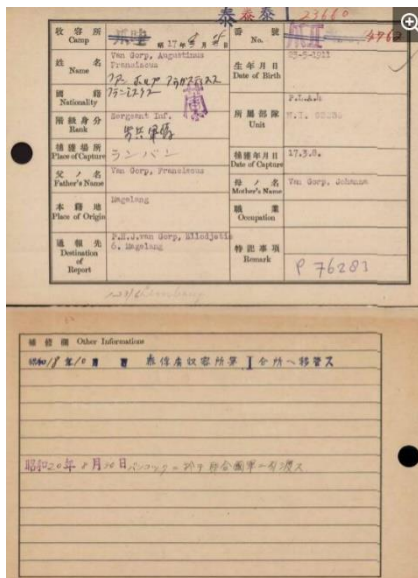 泰 泰 泰 23660
收容所 Camp 昭 17年 月 日
番号 No. 4762
姓名 Name Van Gorp, Augustinus Franciscus
生年月日 Date of Birth 23-5-1911
國籍 Nationality 蘭
階級身分 Rank Sergeant Inf.
所屬部隊 Unit
捕獲場所 Place of Capture ランバン
捕獲年月日 Date of Capture 17.3.8.
父ノ名 Father's Name Van Gorp, Franciscus
母ノ名 Mother's Name Van Gorp, Johanna
本籍地 Place of Origin Magelang
職業 Occupation
通報先 Destination of Report 6. Magelang
特記事項 Remark P 76281
補修欄 Other Informations
昭和18年10月 日 泰俘虜収容所第 I 分所ヘ移管ス
昭和20年8月 日 ニ於テ 聯合國軍ニ引渡ス